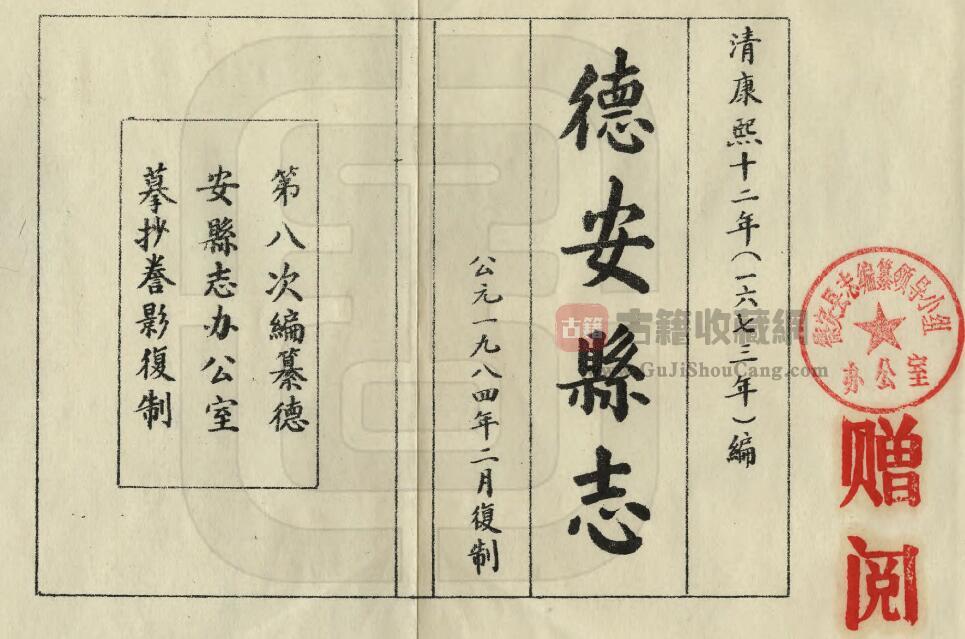 清康熙十二年(一六七三年)編
德安縣志
公元一九八四年二月復制
第八次編纂德
安縣志办公室
摹抄誊影復制
德安县志编纂领导小组
办公室
赠阅
古籍
古籍收藏網
www.GuJiShouCang.com